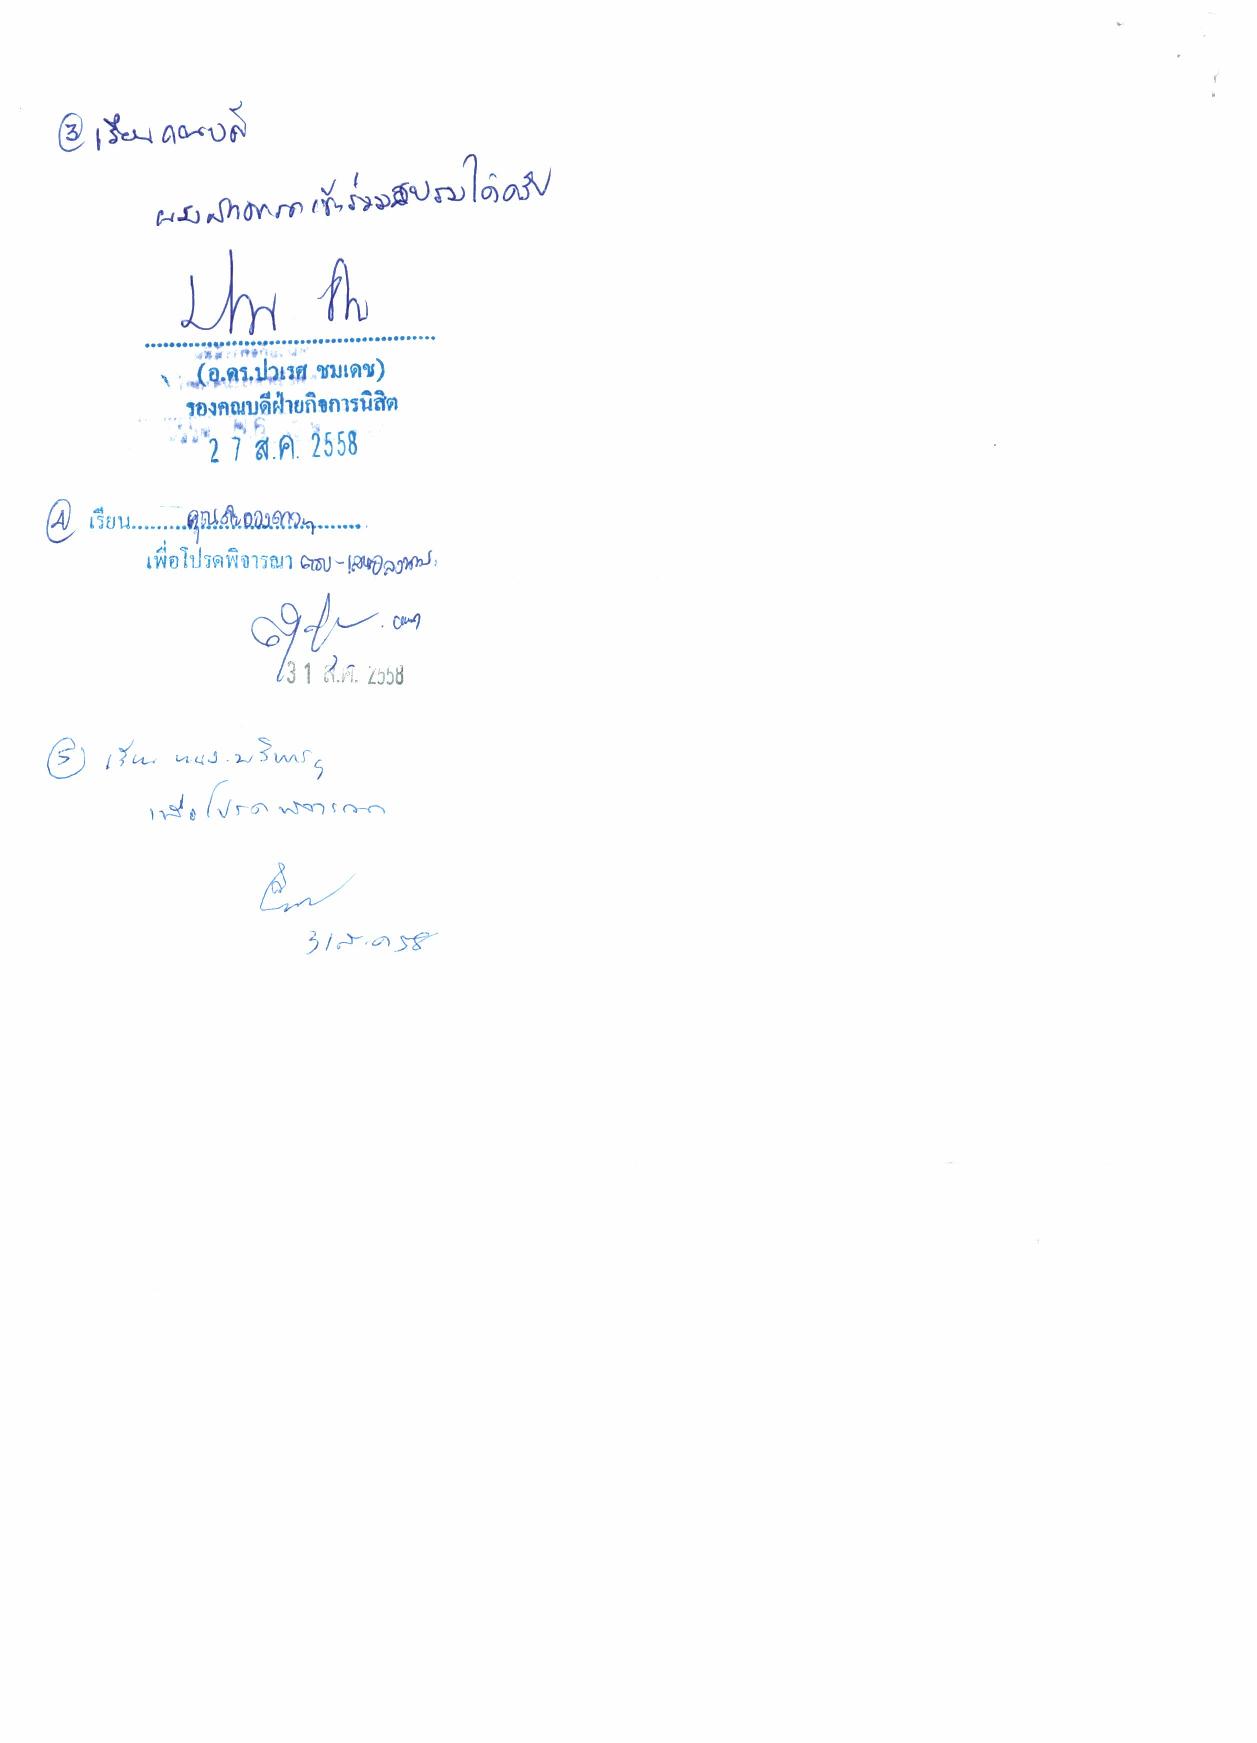 ③ เรียน คณบดี
ผมสามารถเข้าร่วมอบรมได้ครับ
(อ.ดร.ปวเรศ ชมเดช)
รองคณบดีฝ่ายกิจการนิสิต
27 ส.ค. 2558
④ เรียน
เพื่อโปรดพิจารณา
31 ส.ค. 2558
⑤ เรียน หนง.บริหารฯ
เพื่อโปรดพิจารณา
31 ส.ค 58